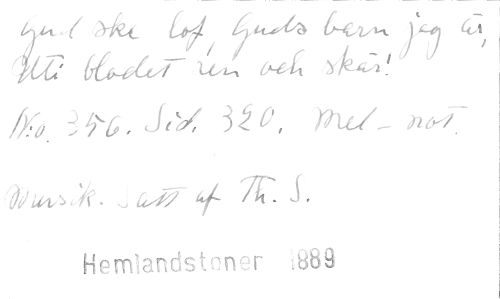 Gud ske lof, Guds barn jag är,
Uti blodet ren och skär!
N:o. 356. Sid. 320. Mel-not.
Musik. Satt af Th. S.
Hemlandstoner 1889